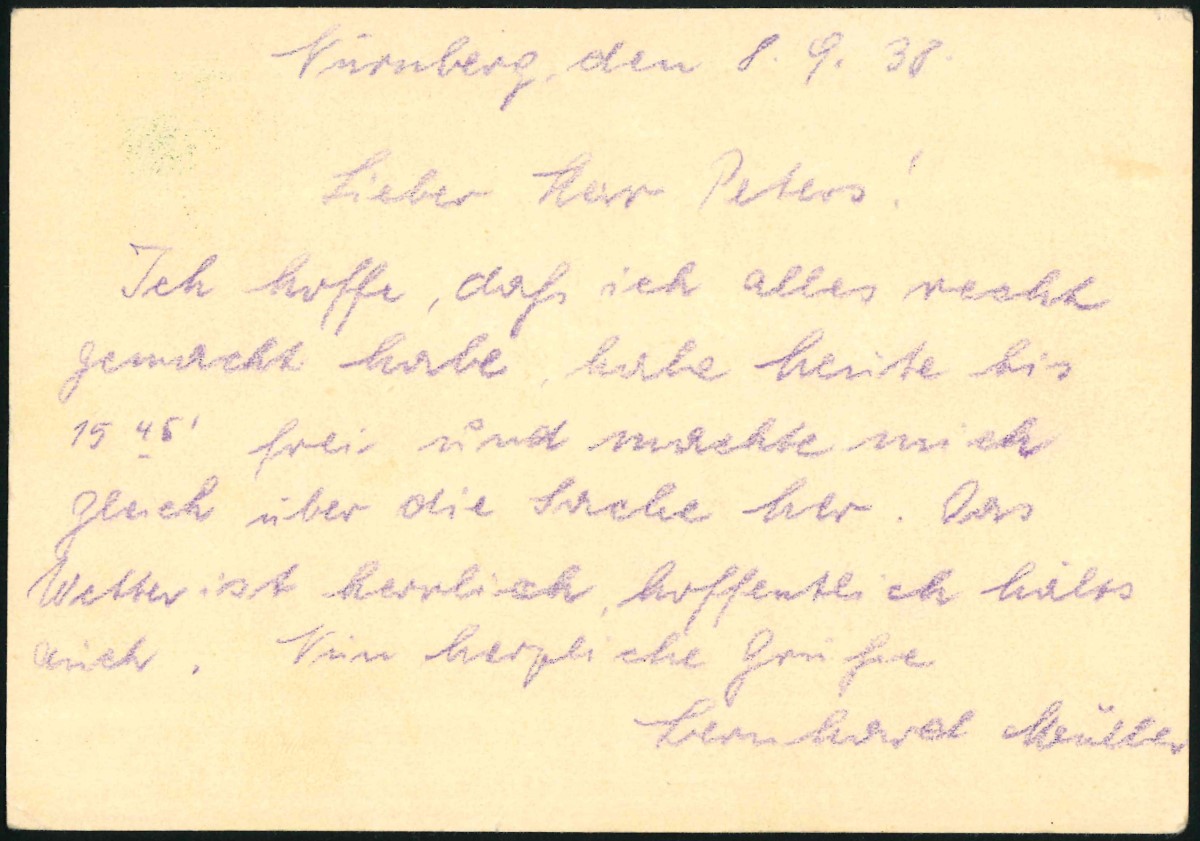 Nürnberg, den 8. 9. 38.
Lieber Herr Peters!
Ich hoffe, daß ich alles recht
gemacht habe, habe heute bis
15 45' frei und machte mich
gleich über die Sache her. Das
Wetter ist herrlich, hoffentlich hälts
auch. Nun herzliche Grüße
Bernhard Müller